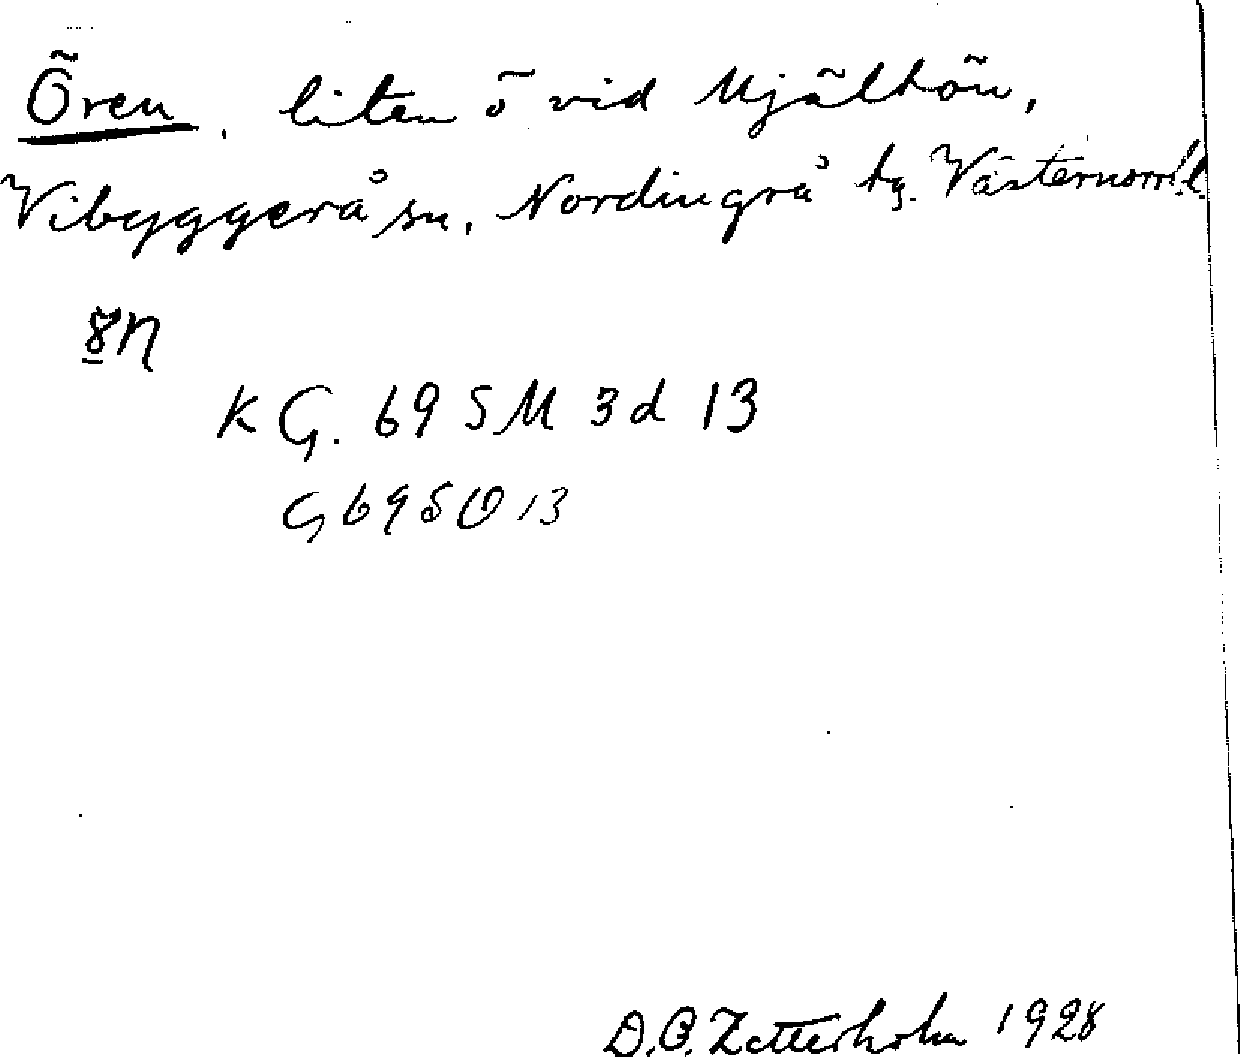 Ören, liten ö vid Mjältön,
Vibyggerå sn, Nordingrå tg. Västernorrl. l.
KG. 69 SM 3d 13
G 69 S Ö 13
D.O. Zetterholm 1928